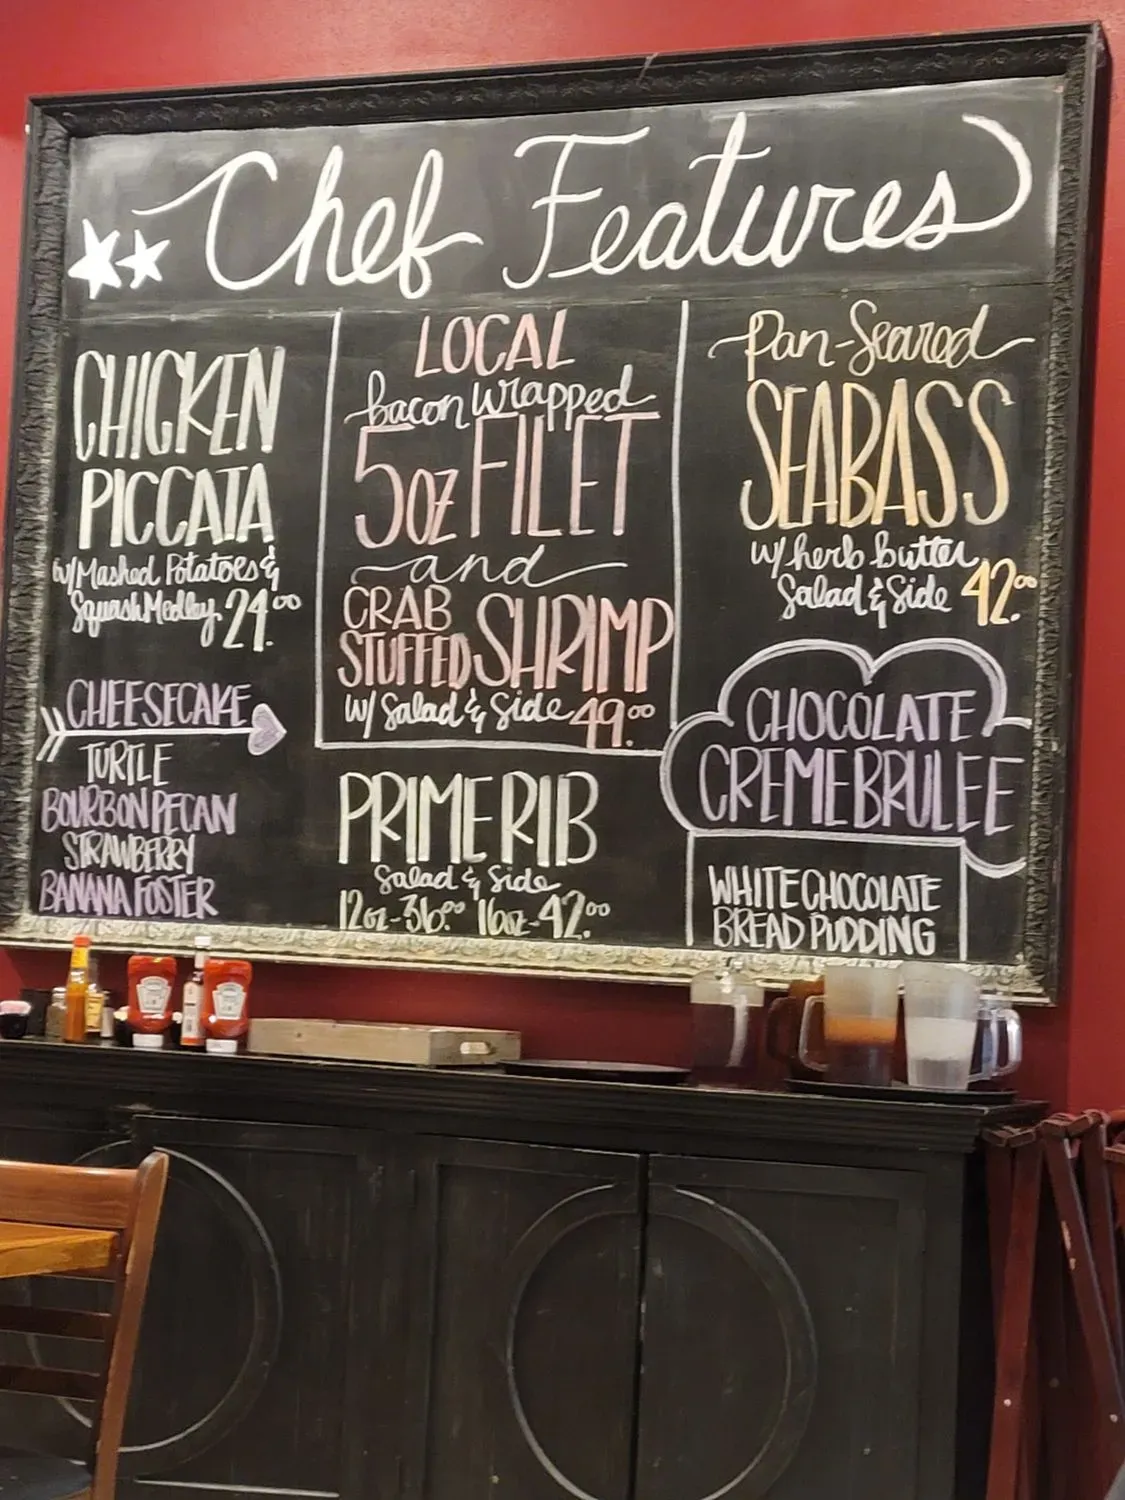 Chef Features
CHICKEN
PICCATA
w/Mashed Potatoes &
Squash Medley 24.00
CHEESECAKE
TURTLE
BOURBON PECAN
STRAWBERRY
BANANA FOSTER
LOCAL
bacon wrapped
5oz FILET
and
CRAB
STUFFED SHRIMP
w/ Salad & Side 49.00
PRIME RIB
Salad & Side
12oz-36.00 16oz-42.00
Pan-Seared
SEABASS
w/ herb butter
Salad & Side 42.00
CHOCOLATE
CREMEBRULEE
WHITE CHOCOLATE
BREAD PUDDING